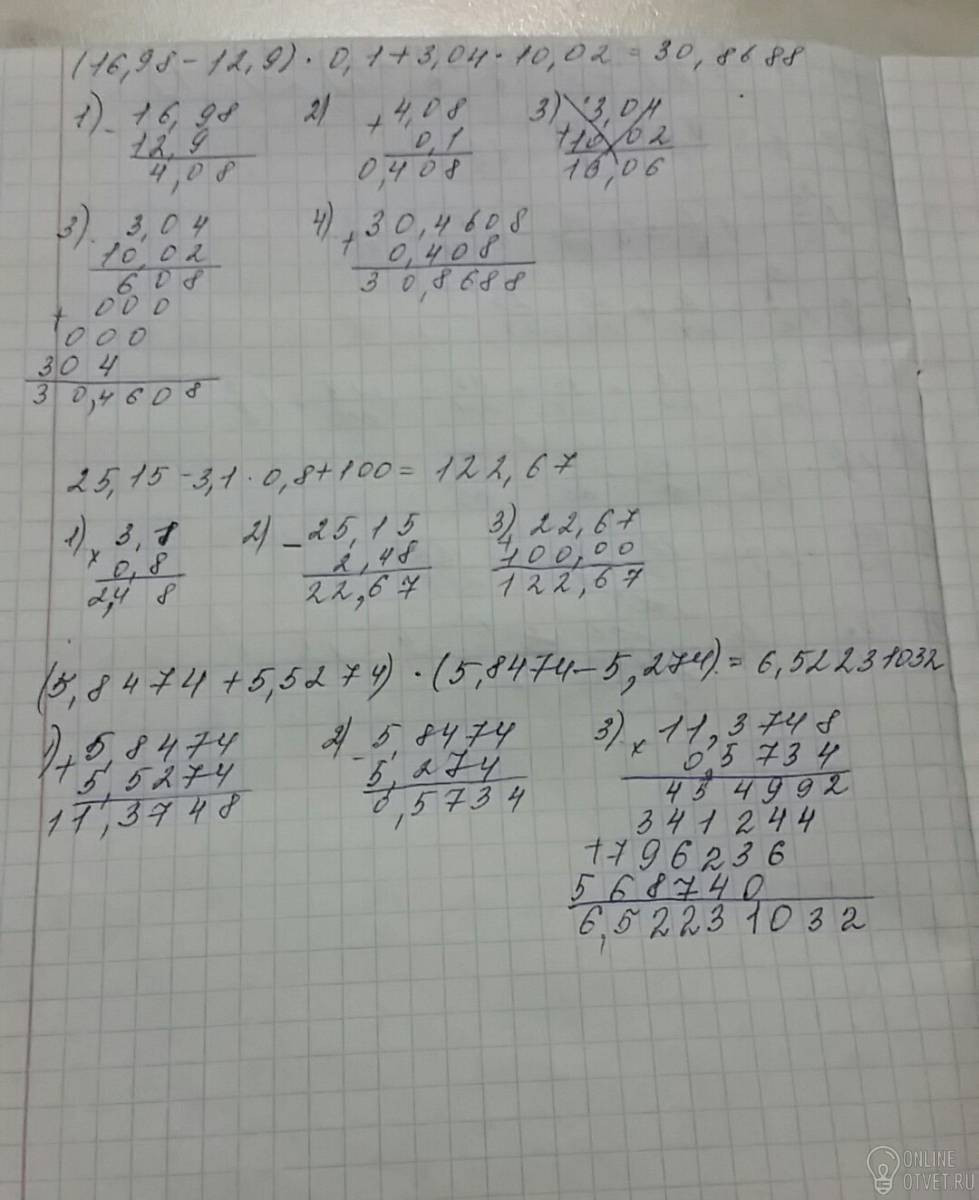 (16,98-12,9)·0,1+3,04·10,02=30,8688
1) - 16,98
12,9
4,08
2) + 4,08
0,1
0,408
3) 3,04
+ 10,02
13,06
3) . 3,04
10,02
608
+ 000
000
304
30,4608
4) + 30,4608
0,408
30,8688
25,15-3,1·0,8+100=122,67
1) x 3,1
0,8
2,48
2) - 25,15
2,48
22,67
3) + 22,67
100,00
122,67
(5,8474+5,5274)·(5,8474-5,274)=6,52231032
1) + 5,8474
5,5274
11,3748
2) - 5,8474
5,274
0,5734
3) x 11,3748
0,5734
454992
341244
+796236
568740
6,52231032
ONLINE
OTVET.RU